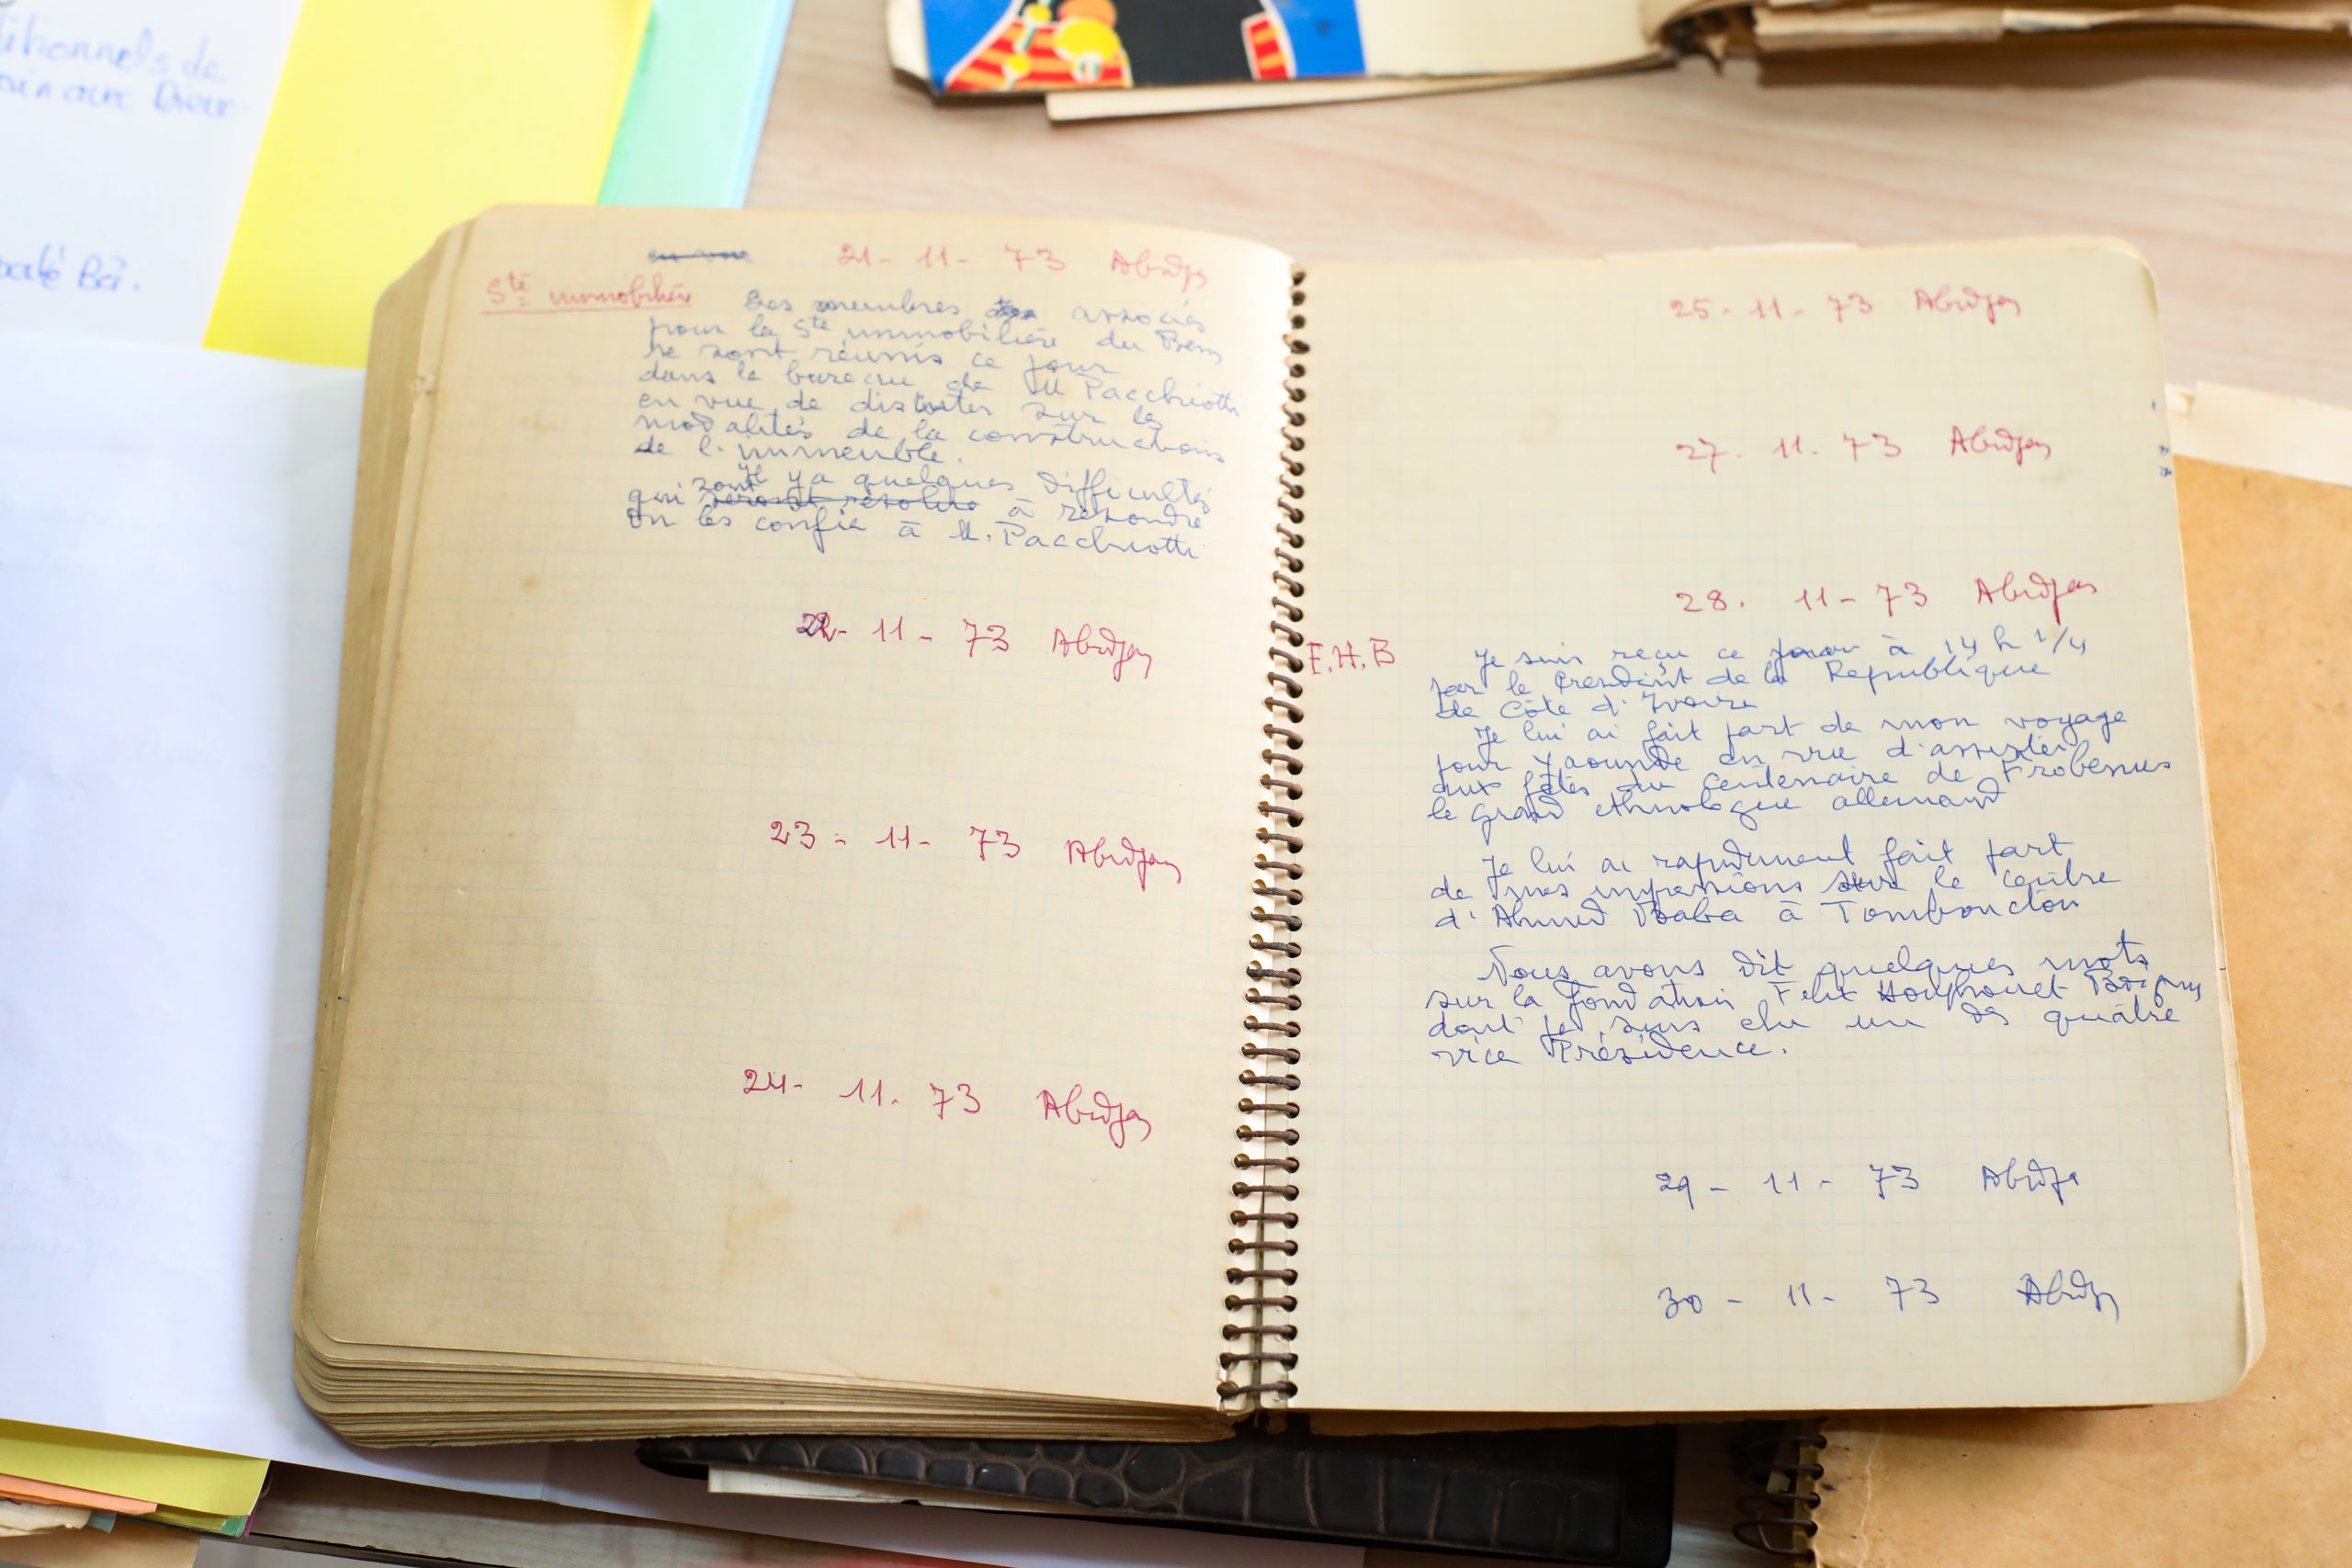 titionnels de
caté Bâ.
en vue
21- 11- 73 Abidjan
Sté immobilière
Les membres des associés
pour la Sté immobilière du Bem
se sont réunis ce jour
dans le bureau de M Pacchiotti
en vue de discuter sur les
modalités de la construction
de l'immeuble.
Il y a quelques difficultés
qui sont seront résolus à résoudre
On les confie à M. Pacchiotti
22- 11- 73 Abidjan
23- 11- 73 Abidjan
24- 11. 73 Abidjan
25- 11- 73 Abidjan
27. 11. 73 Abidjan
28. 11- 73 Abidjan
F.H.B
Je suis reçu ce jour à 14 h 1/4
par le President de la Republique
de Côte d'Ivoire
Je lui ai fait part de mon voyage
pour Yaounde en vue d'assister
aux fêtes du centenaire de Frobenius
le grand ethnologue allemand
Je lui ai rapidement fait part
de mes impressions sur le centre
d'Ahmed Baba à Tombouctou
Nous avons dit quelques mots
sur la fondation Felix Houphouet Boigny
dont je suis elu un des quatre
vice Présidence.
29- 11- 73 Abidja
30- 11- 73 Abidj